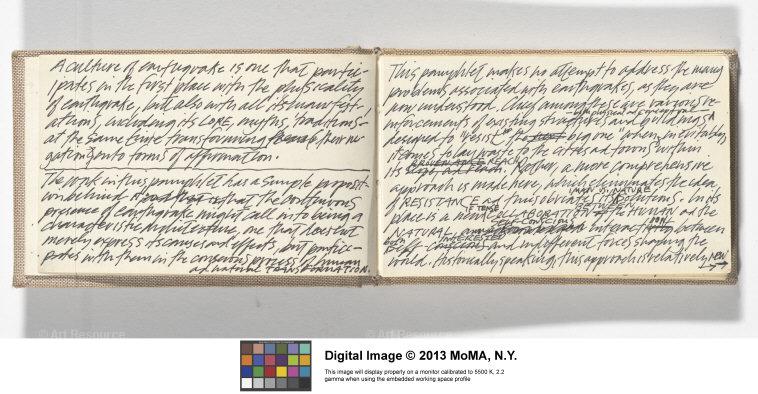 A culture of earthquake is one that partic-
ipates in the first place with the physicality
of earthquake, but also with all its manifest-
ations, including its LORE, myths, traditions-
at the same time transforming their ne-
gation into forms of affirmation.
The work in this pamphlet has a simple proposit-
ion behind it that the continuous
presence of earthquake might call into being a
characteristic Architecture, one that does not
merely express its causes and effects, but partici-
pates with them in the conscious process of human
and natural TRANSFORMATION.
This pamphlet makes no attempt to address the many
problems associated with earthquakes, as they are
now understood. Chief among these are various re-
inforcements of existing structures and buildings
designed to "resist" the big one "when, inevitably,
it comes to lay waste to the cities and towns within
its REACH. Rather, a more comprehensive
approach is made here, which eliminates the idea
of RESISTANCE and thus obviates its solutions. In its
MAN VS. NATURE
place is a new COLLABORATION of the HUMAN and the
NATURAL interaction between
SELF-CONSCIOUS
and indifferent forces shaping the
world. Historically speaking, this approach is relatively NEW
© Art Resource
© Art Resource
Digital Image © 2013 MoMA, N.Y.
This image will display properly on a monitor calibrated to 5500 K, 2.2
gamma when using the embedded working space profile